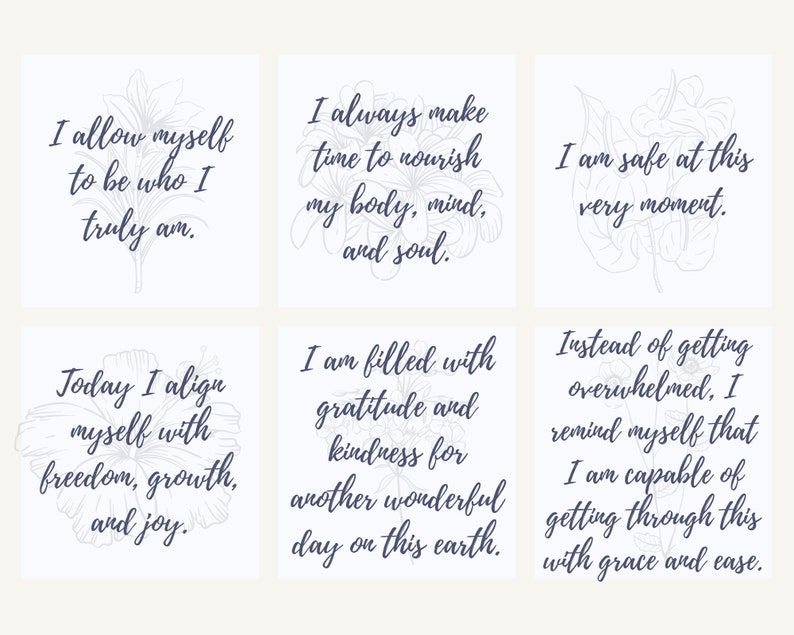 I allow myself
to be who I
truly am.
I always make
time to nourish
my body, mind,
and soul.
I am safe at this
very moment.
Today I align
myself with
freedom, growth,
and joy.
I am filled with
gratitude and
kindness for
another wonderful
day on this earth.
Instead of getting
overwhelmed, I
remind myself that
I am capable of
getting through this
with grace and ease.